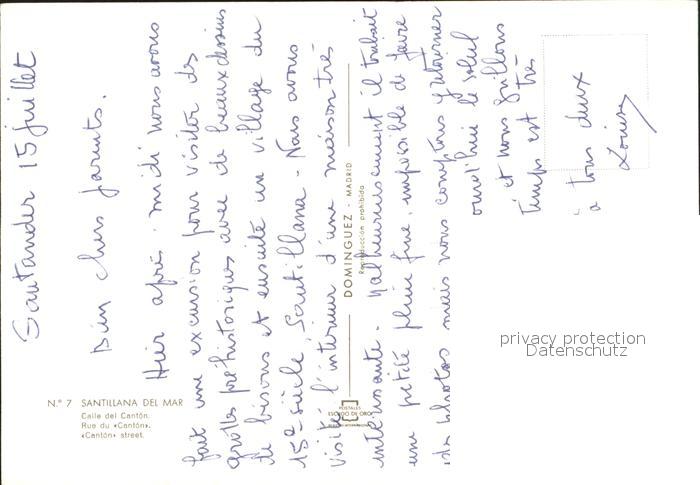 Santander 15 juillet
Bien chers parents.
Hier après-midi nous avons
fait une excursion pour visiter des
grottes préhistoriques avec de beaux dessins
de bisons et ensuite un village du
15e siècle, Santillana - Nous avons
visité l'intérieur d'une maison très
intéressante. Malheureusement il tombait
une petite pluie fine, impossible de faire
des photos mais nous comptons y retourner
aujourd'hui le soleil
et nous grillons
temps est très
à tous deux
Louise
N.º 7 SANTILLANA DEL MAR
Calle del Cantón.
Rue du «Cantón».
«Cantón» street.
DOMINGUEZ - MADRID
Reproducción prohibida
POSTALES
ESCUDO DE ORO
privacy protection
Datenschutz